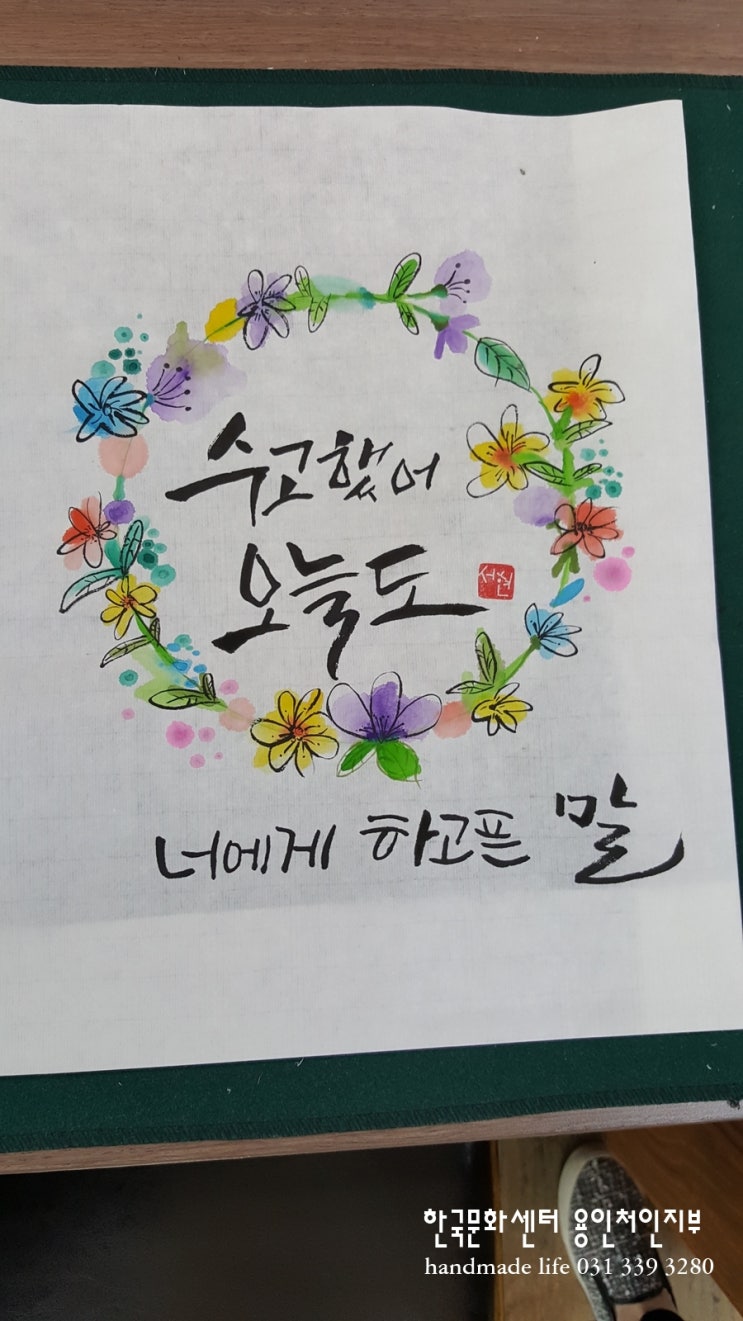 수고했어
오늘도
너에게 하고픈 말
한국문화센터 용인처인지부
handmade life 031 339 3280